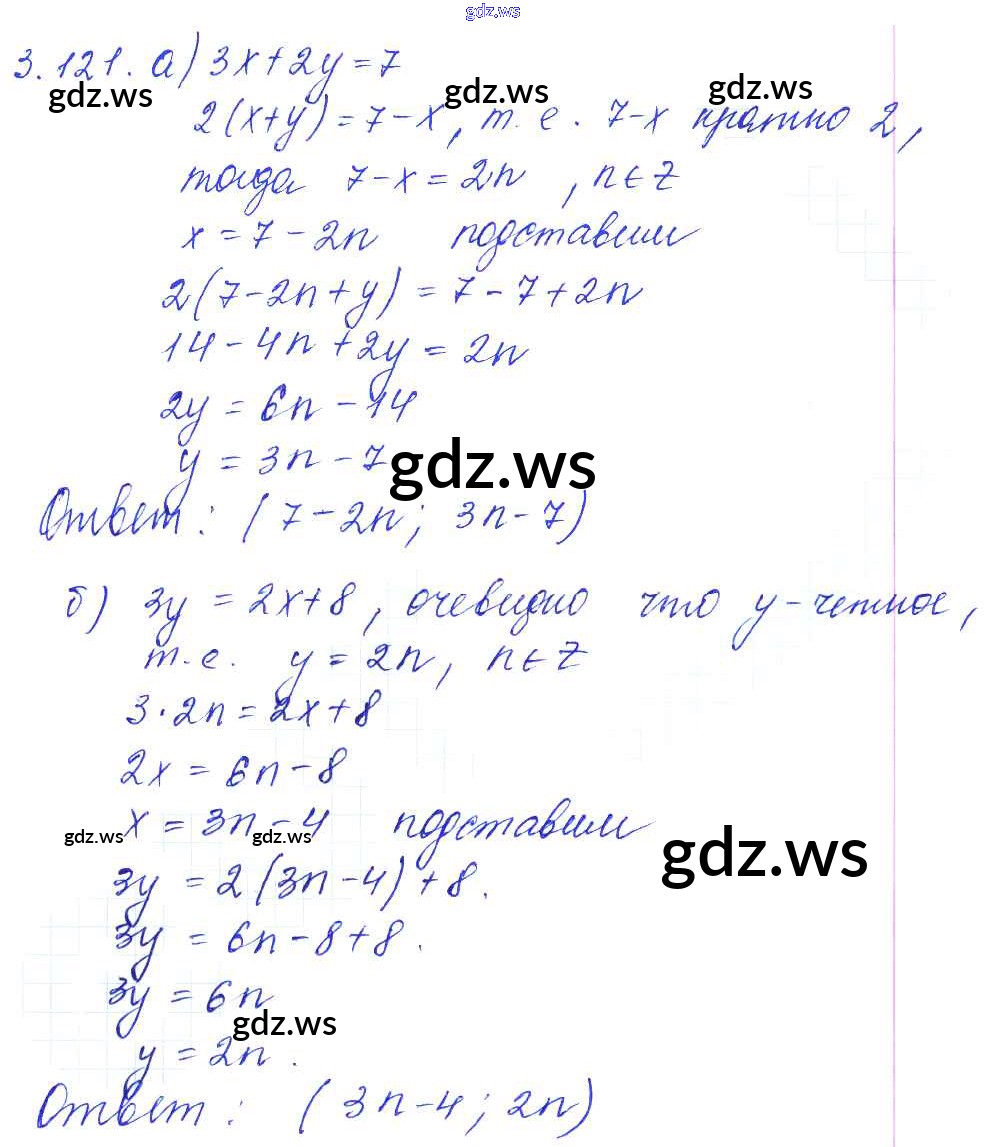 gdz.ws
3.121. а) 3x+2y=7
gdz.ws gdz.ws gdz.ws
2(x+y)=7-x, т.е. 7-x кратно 2,
тогда 7-x=2n, n∈Z
x=7-2n подставим
2(7-2n+y)=7-7+2n
14-4n+2y=2n
2y=6n-14
y=3n-7 gdz.ws
Ответ: (7-2n; 3n-7)
б) 3y=2x+8, очевидно что y-четное,
т.е. y=2n, n∈Z
3·2n=2x+8
2x=6n-8
x=3n-4 подставим
gdz.ws gdz.ws gdz.ws
3y=2(3n-4)+8.
3y=6n-8+8.
3y=6n
gdz.ws
y=2n.
Ответ: (3n-4; 2n)